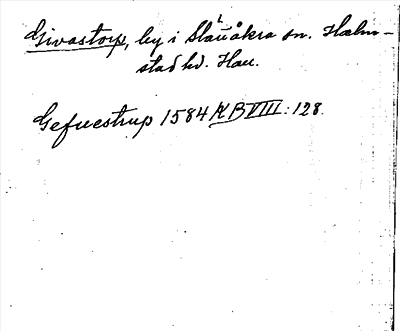 Givastorp, by i Slättåkra sn. Halm-
stad hd. Hall.
Gefuestrup 1584 KB VIII: 128.